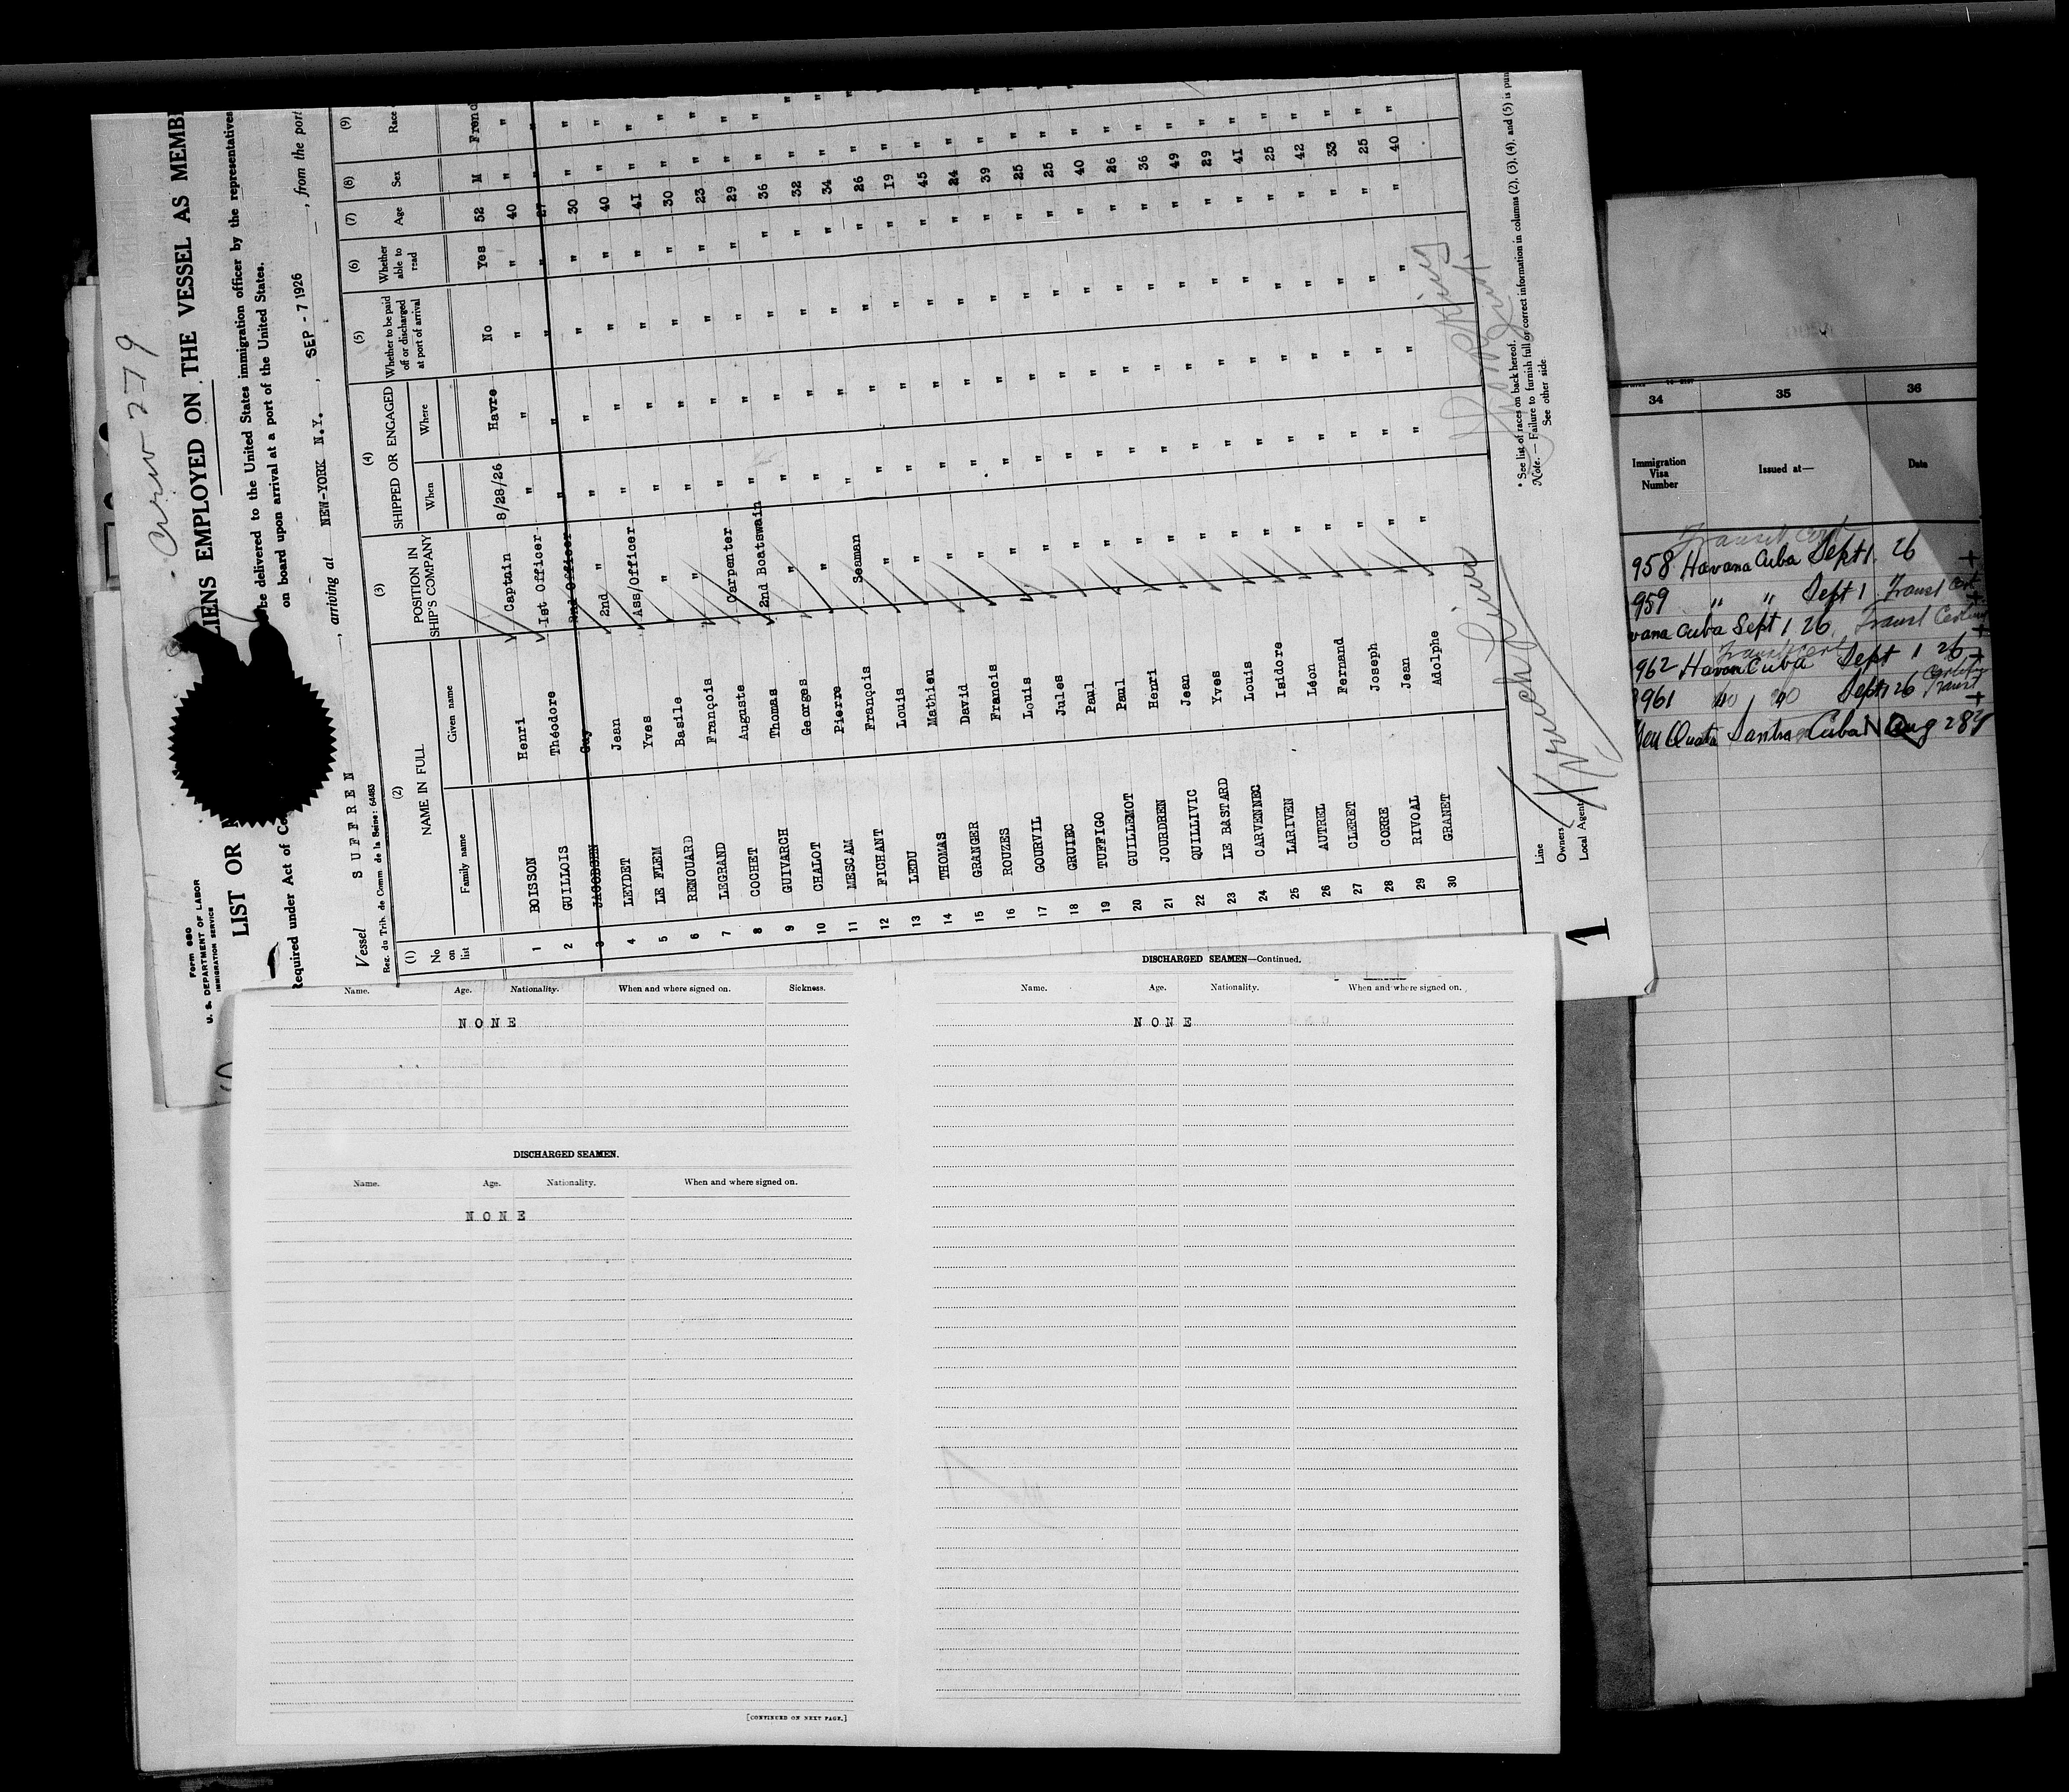 Crew 279
Form 680
U. S. DEPARTMENT OF LABOR
IMMIGRATION SERVICE
LIST OR
LIENS EMPLOYED ON THE VESSEL AS MEMB
Required under Act of Co
be delivered to the United States immigration officer by the representatives
on board upon arrival at a port of the United States.
Vessel SUFFREN , arriving at NEW-YORK N.Y. , SEP - 7 1926 , from the port
Reg. du Trib. de Comm. de la Seine: 64483
(1) (2) (3) (4) (5) (6) (7) (8) (9)
No on list NAME IN FULL POSITION IN SHIP'S COMPANY SHIPPED OR ENGAGED Whether to be paid off or discharged at port of arrival Whether able to read Age Sex Race
Family name Given name When Where
1 BOISSON Henri Captain 8/28/26 Havre No Yes 52 M Frenc
2 GUILLOIS Théodore 1st Officer " " " " 40 " "
3 JACOBSEN Guy 2nd Officer " " " " 27 " "
4 LEYDET Jean 2nd " " " " " 30 " "
5 LE FLEM Yves Ass/Officer " " " " 40 " "
6 RENOUARD Basile " " " " " 41 " "
7 LEGRAND François " " " " " 30 " "
8 COCHET Auguste Carpenter " " " " 23 " "
9 GUIVARCH Thomas 2nd Boatswain " " " " 29 " "
10 CHALOT Georges " " " " " 36 " "
11 MESCAM Pierre " " " " " 32 " "
12 FICHANT François Seaman " " " " 34 " "
13 LEDU Louis " " " " " 26 " "
14 THOMAS Mathieu " " " " " 19 "
15 GRANGER David " " " " " 45 "
16 ROUZES Francis " " " " " 24 " "
17 GOURVIL Louis " " " " " 39 " "
18 GRUIEC Jules " " " " " 25 " "
19 TUFFIGO Paul " " " " " 25 " "
20 GUILLEMOT Paul " " " " " 40 "
21 JOURDREN Henri " " " " " 26 "
22 QUILLIVIC Jean " " " " " 36 "
23 LE BASTARD Yves " " " " " 49 "
24 CARVENNEC Louis " " " " " 29 "
25 LARIVEN Isidore " " " " " 41 "
26 AUTREL Léon " " " " " 25 "
27 CLERET Fernand " " " " " 42 "
28 CORRE Joseph " " " " " 33 "
29 RIVOAL Jean " " " " " 25 "
30 GRANET Adolphe " " " " " 40 "
Line French Line
Owners
Local Agents
* See list of races on back hereof.
Note. — Failure to furnish full or correct information in columns (2), (3), (4), and (5) is pun
See other side
1
Name. Age. Nationality. When and where signed on. Sickness.
NONE
DISCHARGED SEAMEN.
Name. Age. Nationality. When and where signed on.
NONE
[CONTINUED ON NEXT PAGE.]
DISCHARGED SEAMEN—Continued.
Name. Age. Nationality. When and where signed on.
NONE
34 35 36
Immigration Visa Number Issued at— Date
Transit Cert
958 Havana Cuba Sept 1. 26 +
959 " " Sept 1 Transt Cert
vana Cuba Sept 1 26. Transt
962 Havana Cuba Sept 1 26 +
3961 Sept 1 26 Transt +
Quota Cuba Aug 28